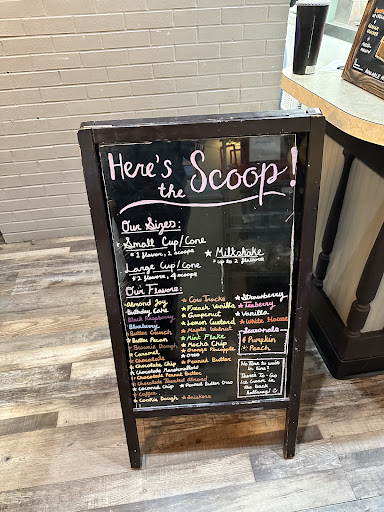 Here's
the Scoop!
Our Sizes:
Small Cup/Cone
* 1 flavors, 2 scoops
Large Cup/Cone
* 2 flavors, 4 scoops
* Milkshake
* up to 2 flavors
Our Flavors:
Almond Joy
Birthday Cake
Black Raspberry
Blueberry
Butter Crunch
Butter Pecan
Brownie Dough
Caramel
Chocolate
Chocolate Chip
Chocolate Marshmallow
Chocolate Peanut Butter
Chocolate Toasted Almond
Coconut Chip
Coffee
Cookie Dough
* Cow Tracks
* French Vanilla
* Grapenut
* Lemon Custard
* Maple Walnut
* Mint Flake
* Mocha Chip
* Orange Pineapple
* Oreo
* Peanut Butter
* Peanut Butter Oreo
* Strawberry
* Teaberry
* Vanilla
* White House
Seasonals
* Pumpkin
* Peach
No time to wait
in line?
There's To-Go
Ice Cream in
the back
hallway! :)